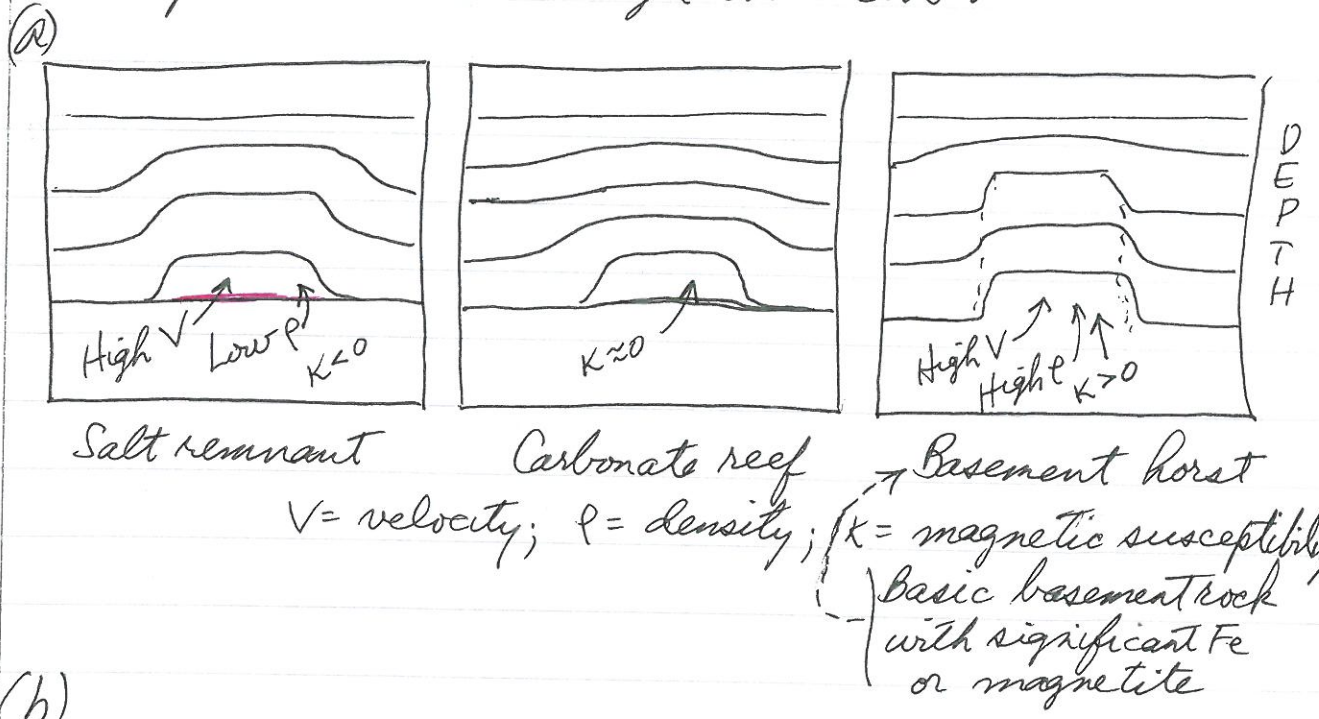 (a)
DEPTH
High V Low ρ K<0
K≈0
High V High ρ K>0
Salt remnant
Carbonate reef
Basement horst
V= velocity; ρ= density; K= magnetic susceptibility
Basic basement rock
with significant Fe
or magnetite
(b)